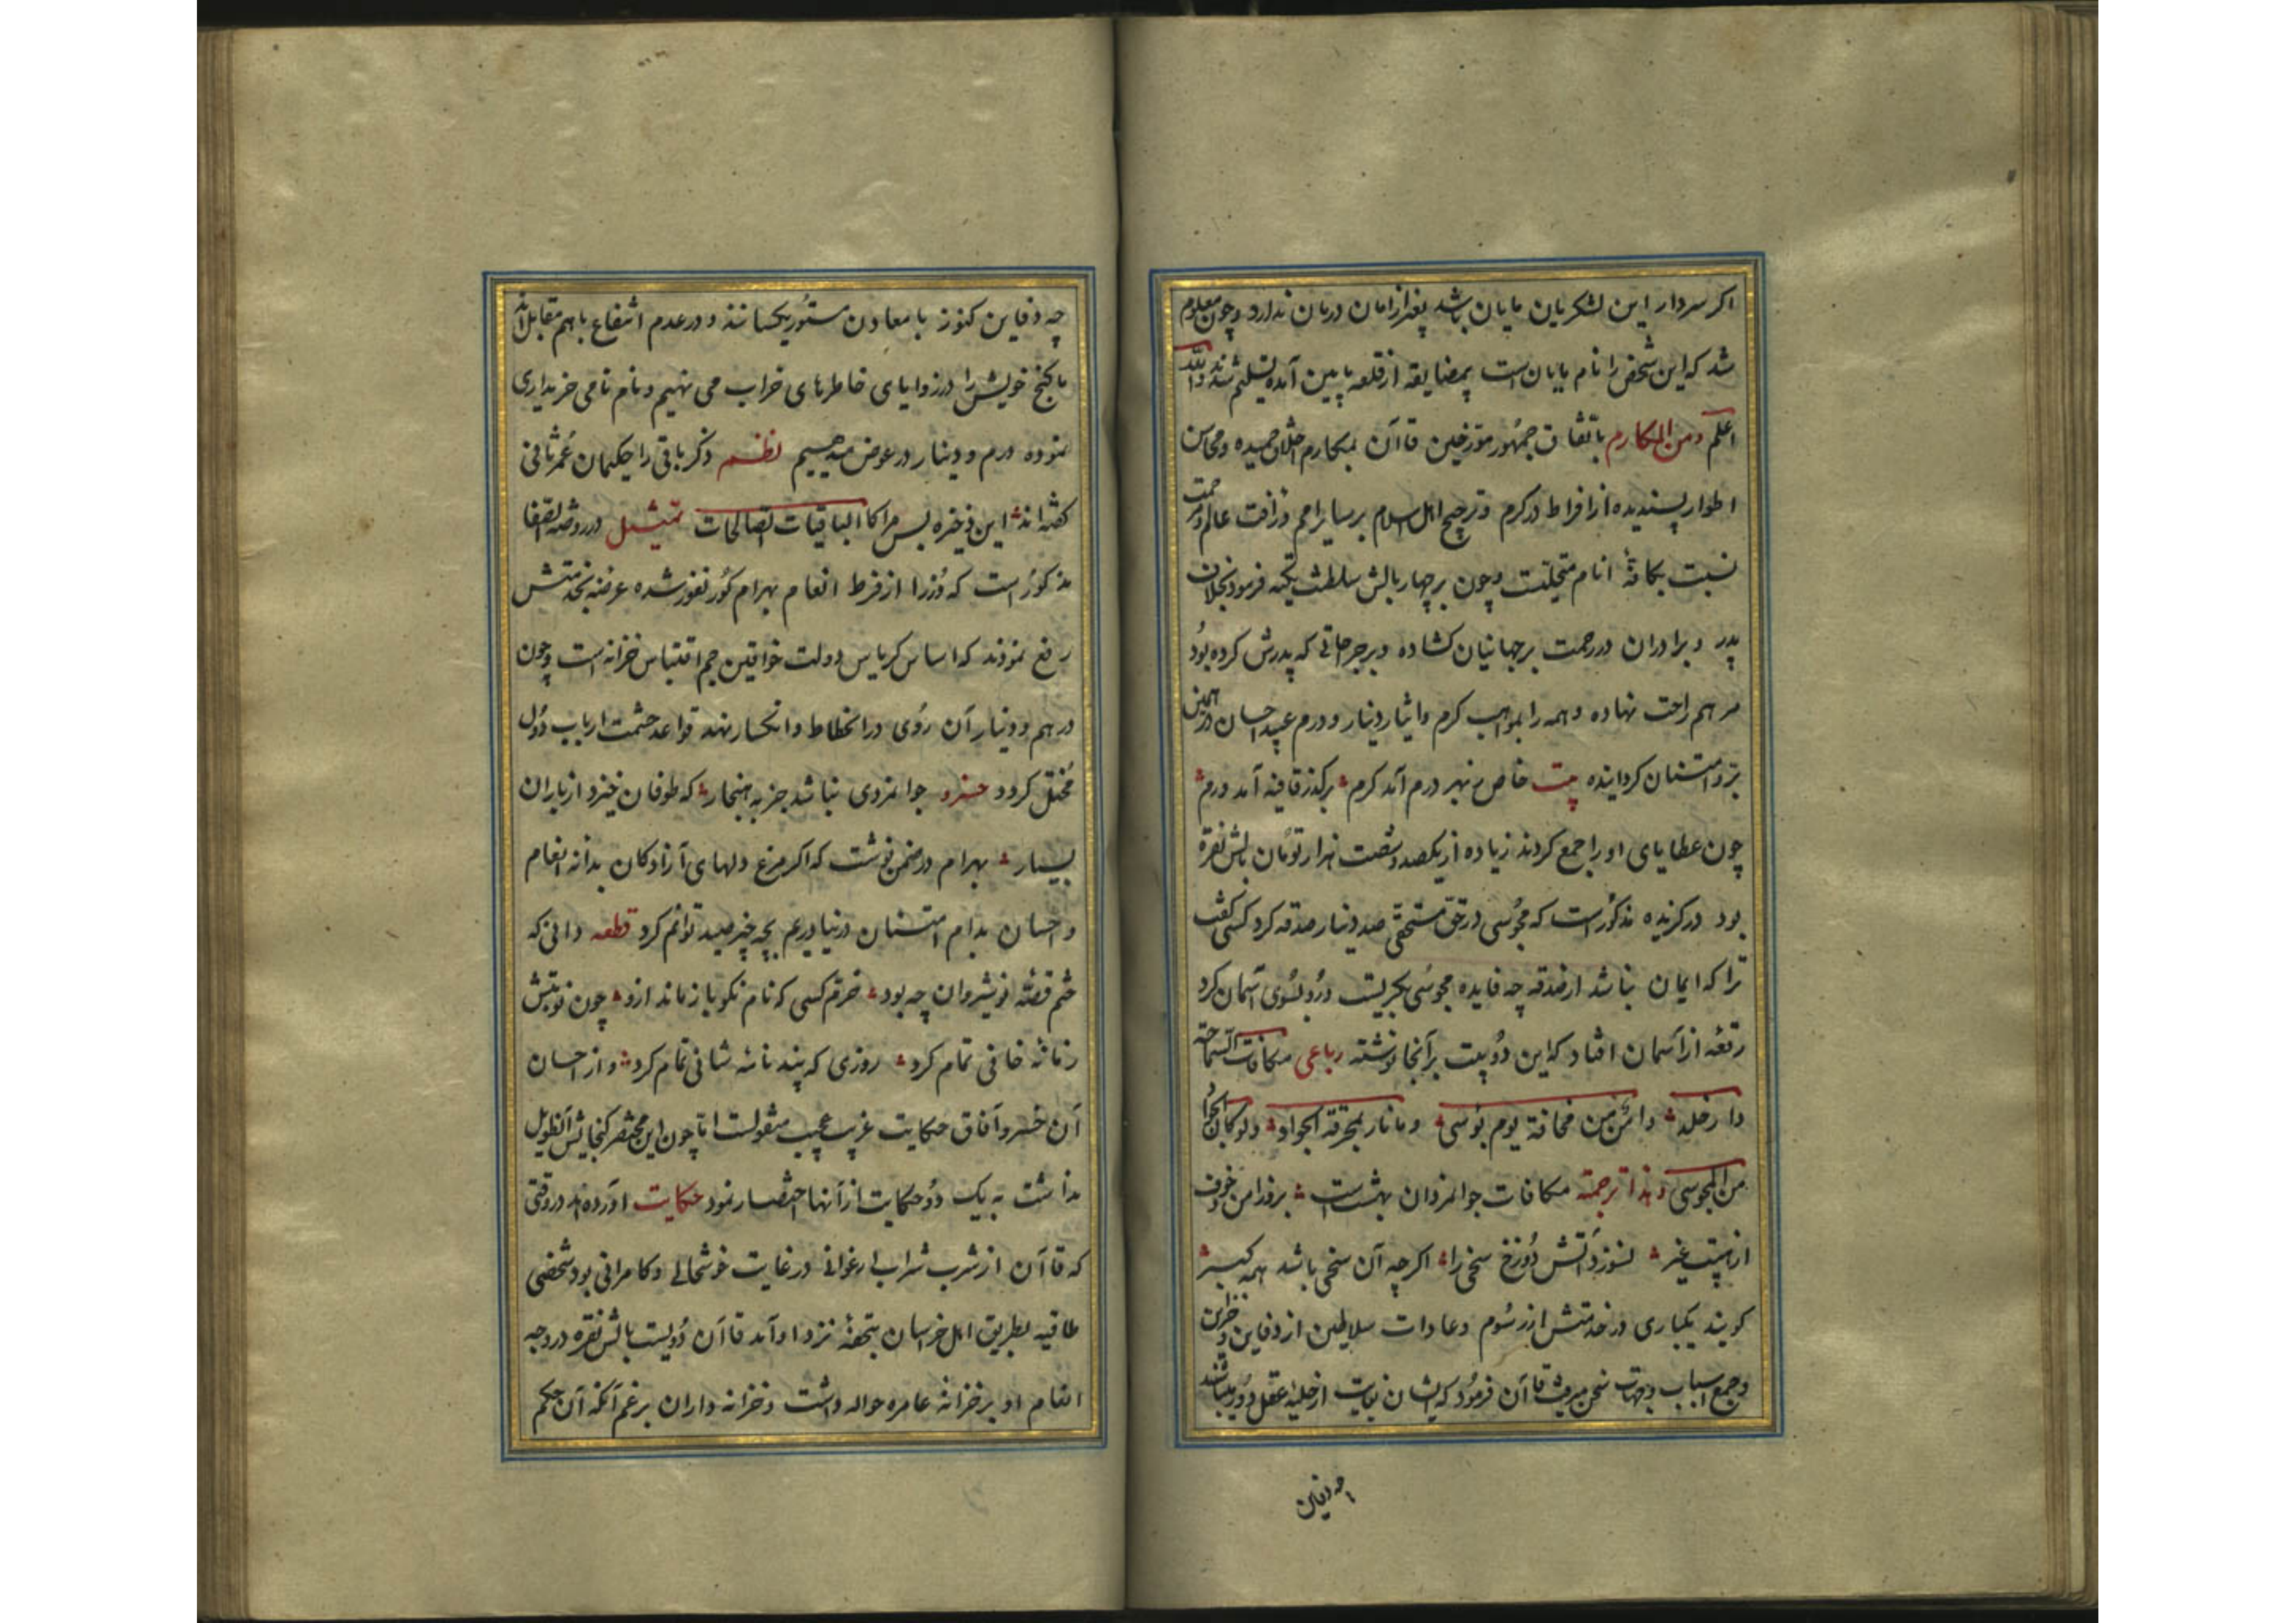 اکر سردار این لشکریان بایان باشد بغیر از امان درمان ندارد و چون معلوم
شد که این شخص را نام بایان است بمضایقه از قلعه پایین آمده تسلیم شدند والله
اعلم ومن المکارم باتفاق جمهور مورخین قاآن بمکارم اخلاق حمیده و محاسن
اطوار پسندیده از افراط در کرم و ترجیح اهل اسلام بر سایر امم و رافت عالم و رحمت
نسبت بکافهٔ انام متحلیست و چون بر چهار بالش سلطنت تکیه فرمود بخلاف
پدر و برادران در رحمت بر جهانیان کشاده و بر جراحاتی که پدرش کرده بود
مرهم راحت نهاده و همه را بمواهب کرم و ایثار دینار و درم عبید احسان و رهین
بر و امتنان کردانیده بیت خاص بهر درم آمد کرم برکذر قافیه آمد درم
چون عطایای او را جمع کردند زیاده از یکصد و شصت هزار تومان بالش نقره
بود در کزیده مذکور است که مجوسی در حق مستحقی صد دینار صدقه کرد کسی کفت
ترا که ایمان نباشد از صدقه چه فایده مجوسی بکریست و رو بسوی آسمان کرد
رقعه از آسمان افتاد که این دو بیت بر آنجا نوشته رباعی مکافات السماحة
دار خلد وامن من مخافة یوم بوسی وما نار بمحرقة الجواد ولو کان الجواد
من المجوسی وهذا ترجمته مکافات جوانمردان بهشت است بروز امن و خوف
از هیبت غیر نسوزد آتش دوزخ سخی را اکرچه آن سخی باشد همه کبر
کویند یکباری در خدمتش از رسوم و عادات سلاطین از دفاین و خزاین
و جمع اسباب وجهات سخن میرفت قاآن فرمود که ایشان بغایت از حلیهٔ عقل دور میباشند
چه دفاین
چه دفاین کنوز با معادن مستور یکسانند و در عدم انتفاع با هم مقابل اند
ما کنج خویش را در زوایای خاطرهای خراب می نهیم و نام نامی خریداری
نموده درم و دینار در عوض میدهیم نظم ذکر باقی را حکیمان عمر ثانی
کفته اند این ذخیره بس مرا کالباقیات الصالحات تمثیل در روضة الصفا
مذکور است که وزرا از فرط انعام بهرام کور نفور شده عرضه بخدمتش
رفع نمودند که اساس کریاس دولت خواقین جم اقتباس خزانه است و چون
درهم و دینار آن روی در انحطاط و انکسار نهد قواعد حشمت ارباب دول
مختل کردد خسرو جوانمردی نباشد جز به هنجار که طوفان خیزد از باران
بسیار بهرام در ضمن نوشت که اکر مرغ دلهای آزادکان بدانه انعام
و احسان بدام امتنان در نیاوریم بچه چیز صید توانم کرد قطعه دانی که
ختم قصه نوشیروان چه بود خرم کسی که نام نکو باز ماند ازو چون نوبتش
زمانهٔ خانی تمام کرد روزی که پند نامهٔ شانی تمام کرد و از احسان
آن خسرو آفاق حکایت غریب عجیب منقولست اما چون این مختصر کنجایش التطویل
نداشت به یک دو حکایت از آنها اختصار نمود حکایت آورده اند در وقتی
که قاآن از شرب شراب ارغوانی در غایت خوشحالی و کامرانی بود شخصی
طاقیه بطریق اهل خراسان بتحفه نزد او آمد قاآن دویست بالش نقره در وجه
انعام او بر خزانه عامره حواله داشت و خزانه داران برغم آنکه آن حکم